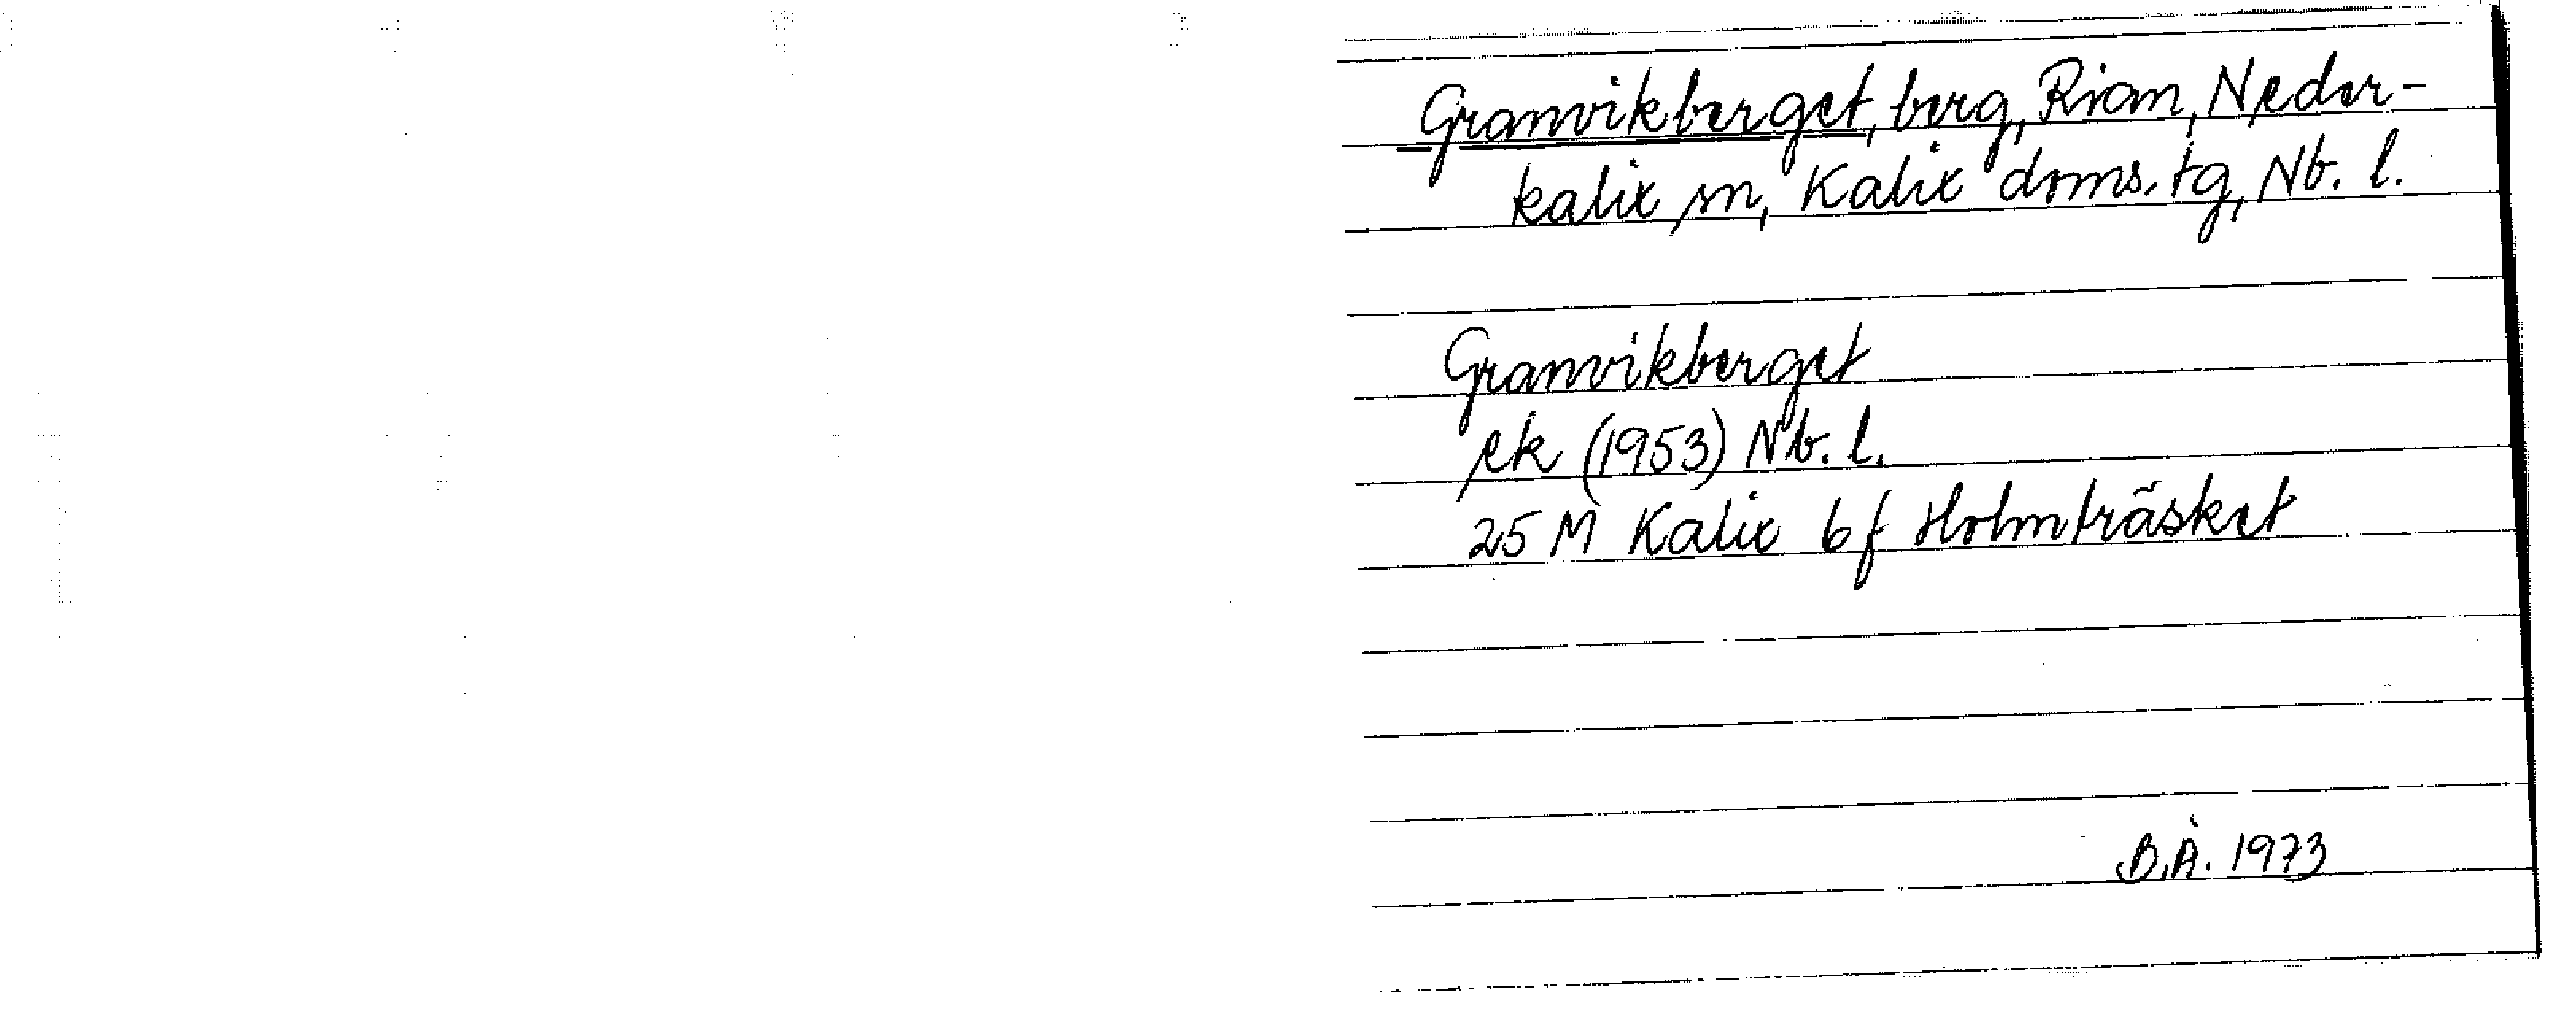 Granvikberget, berg, Rian, Neder-
kalix sn, Kalix doms. tg, Nb. l.
Granvikberget
ek (1953) Nb. l.
25 M Kalix 6 f Holmträsket
B.Å. 1973